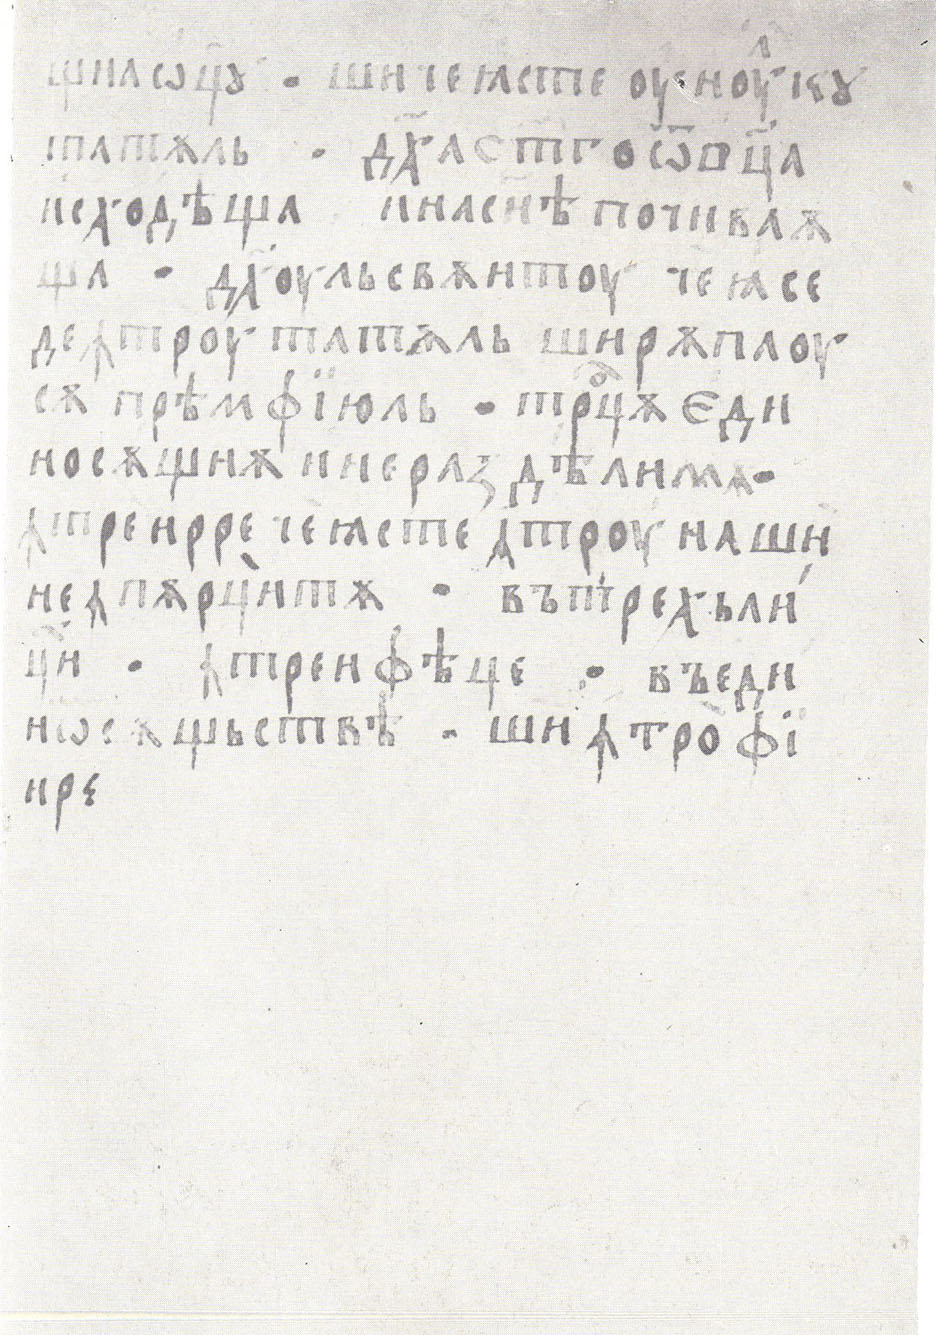 щнаѡц҃ꙋ · шичеꙗсте оуноу́лкꙋ
татѫль · дх҃астгоѿѡц҃а
исходѣща инасн҃ѣпочиваѫ
ща · дх҃оульсвѫнтоу чеꙗсе
деꙟтроу татѫль ширѫпаоу
сѫ прѣмфїюль · тро҃цѫ єди
носѫщнѫ инераздѣлимѫ ·
ꙟтреирре чеꙗсте ꙟтроу наши
неꙟпѫрцитѫ · вътрехъли
ци · ꙟтреифѣце · въеди
нѡсѫщьствѣ · шиꙟтрофї
ире